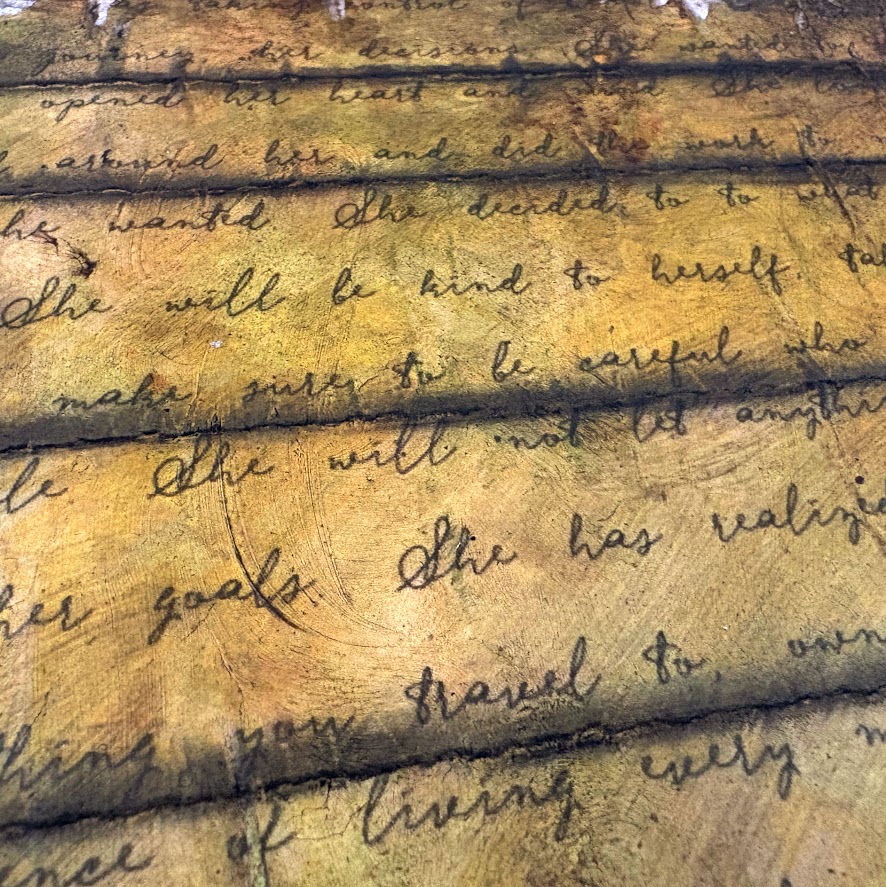 taking control of
journey, her decisions She wanted to
opened her heart and mind She
around her and did the work to
he wanted She decided to to what
She will be kind to herself. ta
make sure to be careful who
le She will not let anythi
her goals She has realize
thing you travel to, own
ence of living every m